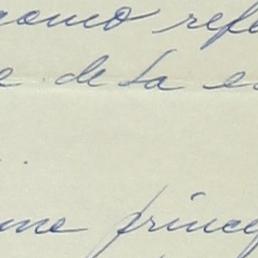 como refe
e de la e
me princ